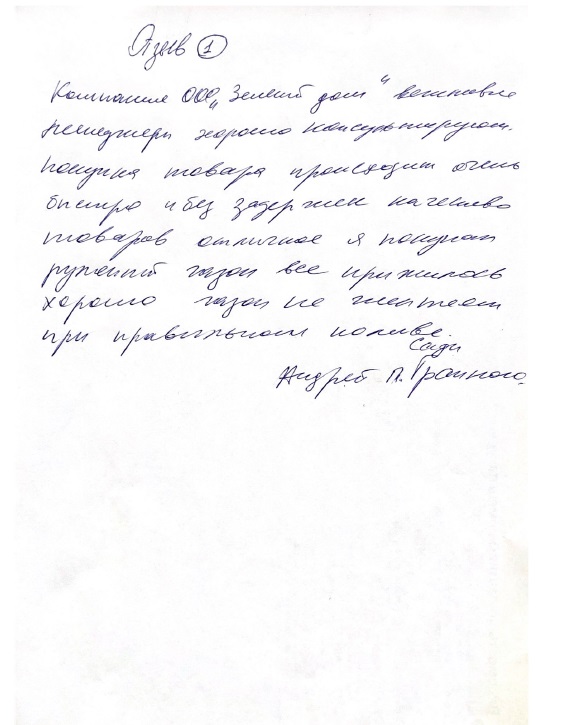 Отзыв 1
Компания ООО „Зелений дом" вежливые
менеджеры хорошо консультируют.
покупка товара происходит очень
быстро и без задержек качество
товаров отличное я покупал
рулонний газон все прижилось
хорошо газон не желтеет
при правильном поливе.
Андрей П.